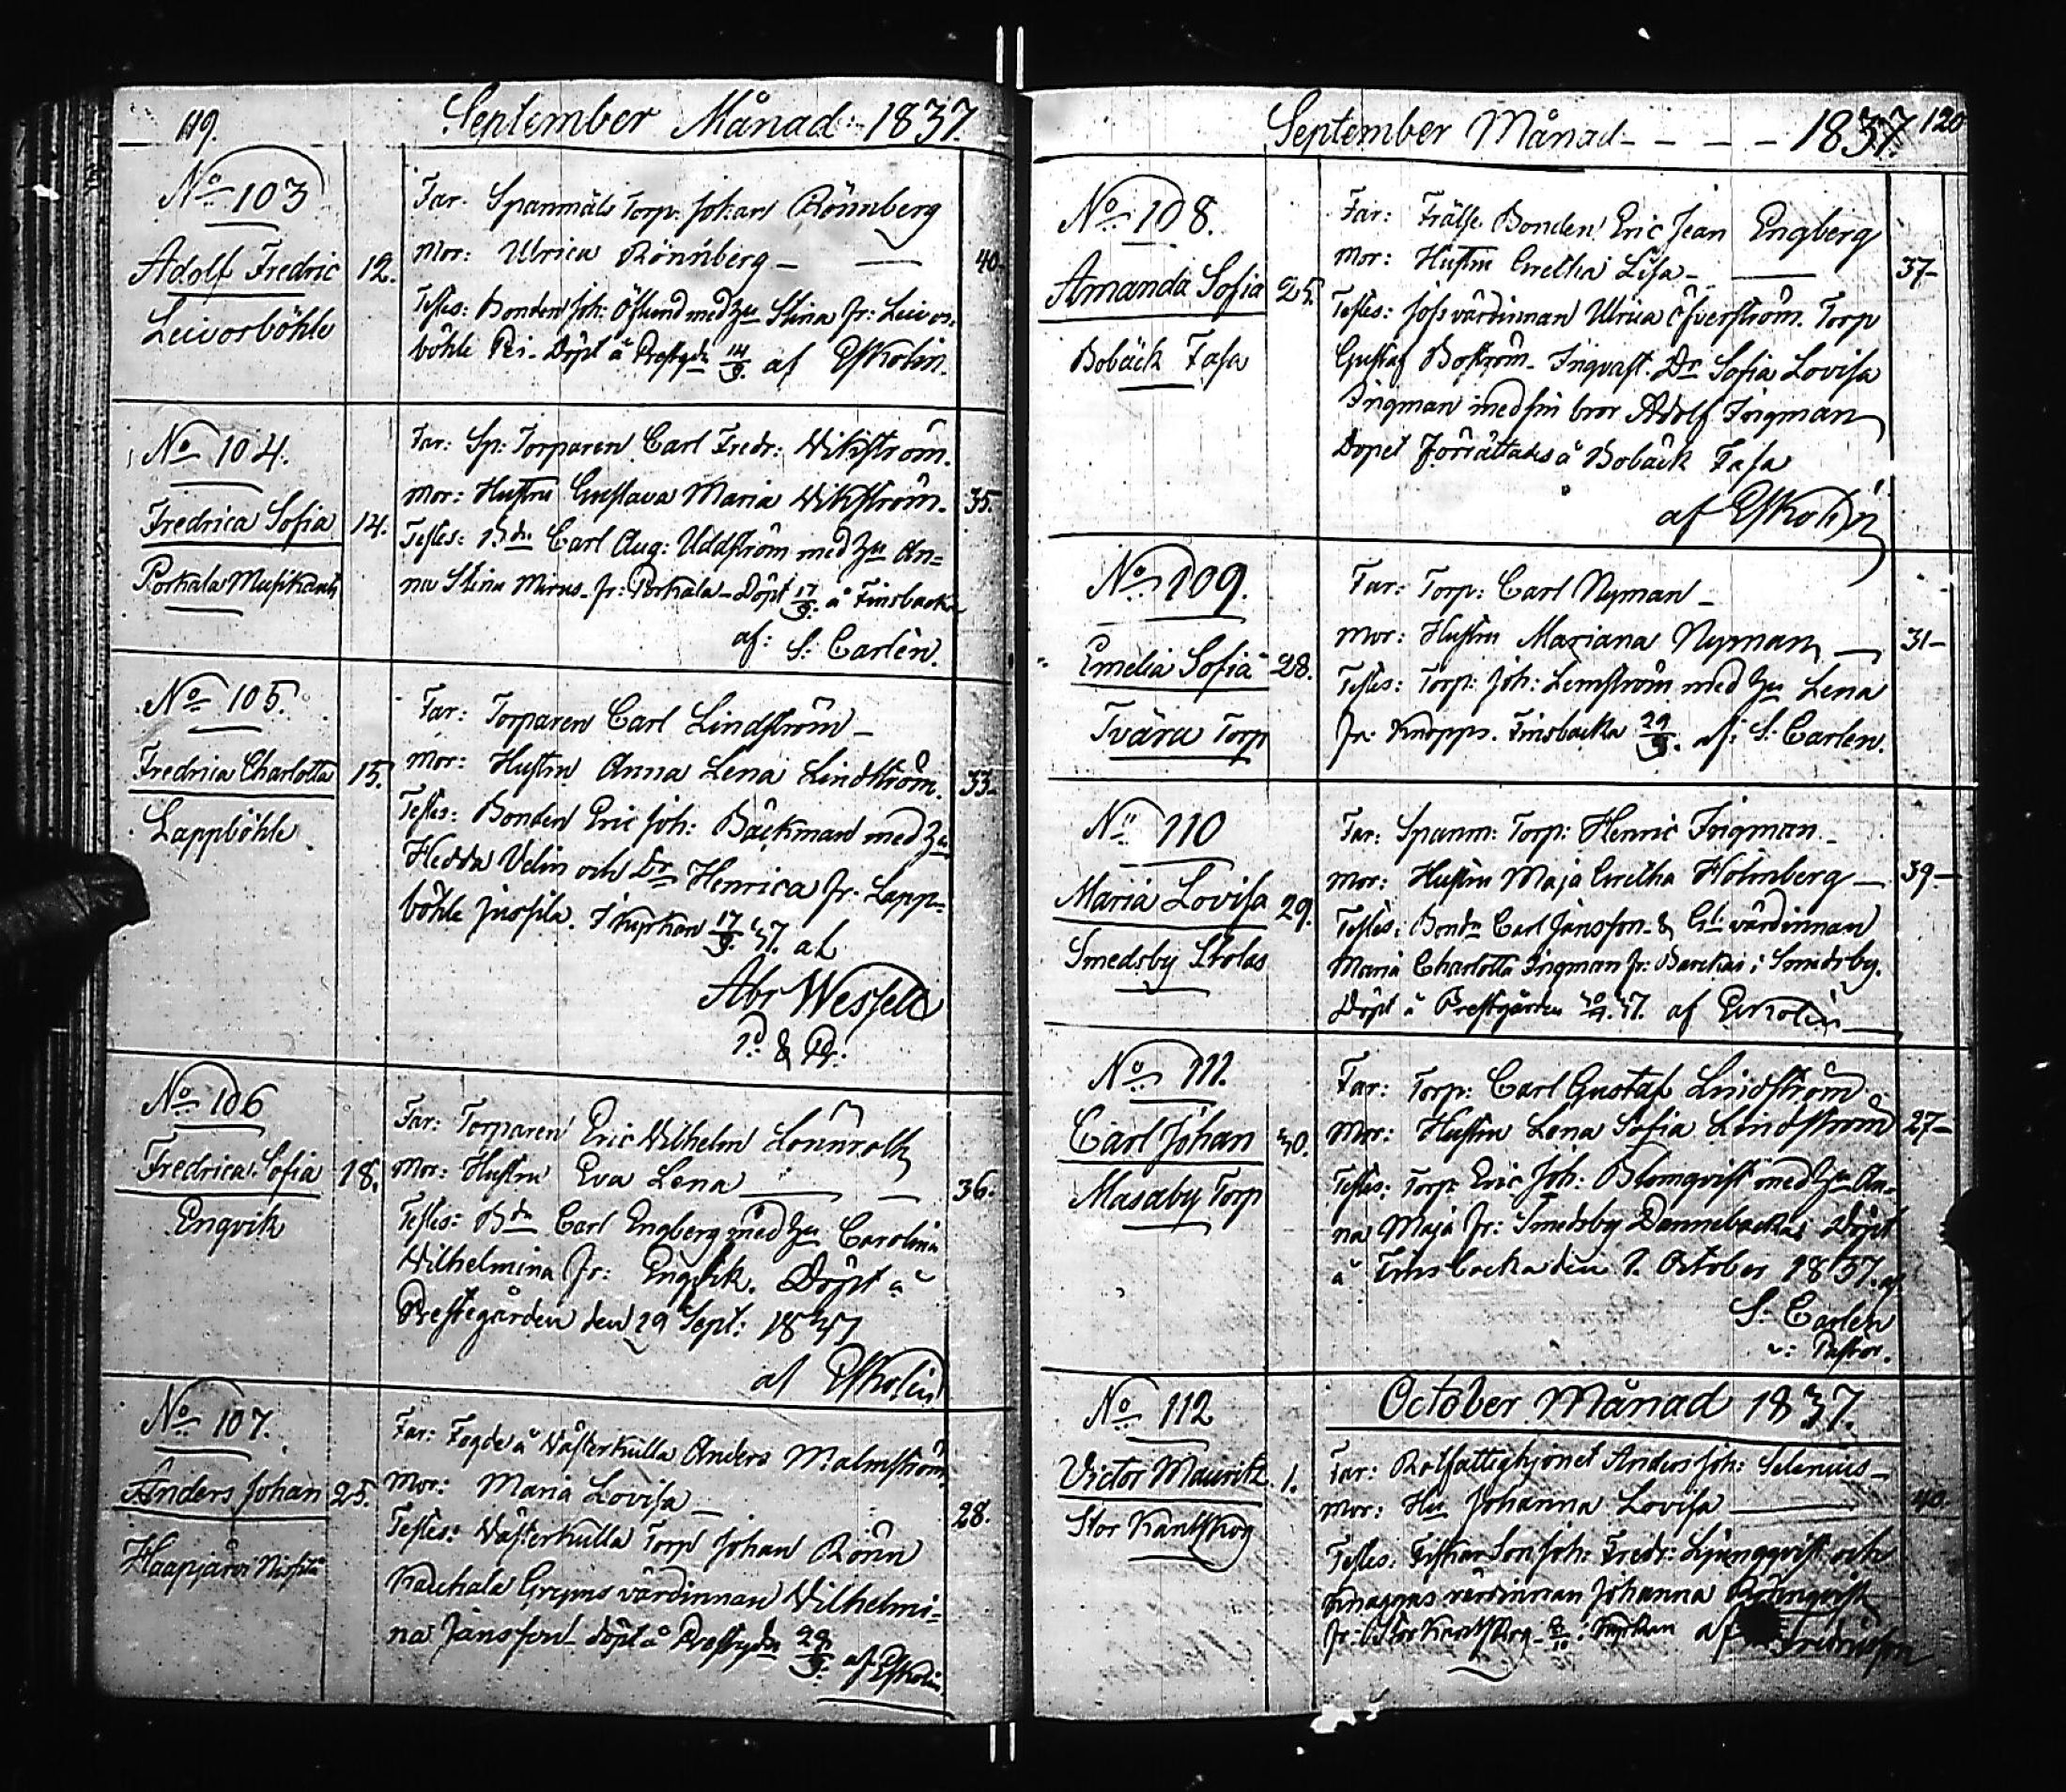 119.
September Månad 1837.
No 103
Adolf Fredric
Leivosböhle
12.
Far. Spanmåls Torp. Johan Rönnberg
Mor: Ulrica Rönnberg –
Testes: Bonden Joh: Östlund med Hu Stina fr: Leivos-
böhle Döpt å Prestgdn 14/9. af Eskolin.
40
No 104.
Fredrica Sofia
Porkala
14.
Far: Sp: Torparen Carl Fredr: Wikström.
Mor: Hustru Gustava Maria Wikström.
Testes: Bdn Carl Aug: Uddström med Hu An=
na Stina fr: Porkala – Döpt 17/9. å Finsbacka
af: S. Carlén.
35.
No 105.
Fredrica Charlotta
Lappböhle
15.
Far: Torparen Carl Lindström –
Mor: Hustru Anna Lena Lindström.
Testes: Bonden Eric Joh: Bäckman med Hu
Hedda och Dr Henrica fr. Lapp=
böhle Jussila. I kyrkan 17/9. 37. af
Abr Wesfelt
33
No 106
Fredrica Sofia
Engvik
18.
Far: Torparen Eric Wilhelm Lönnroth
Mor: Hustru Eva Lena
Testes: Bdn Carl Engberg med Hu Carolina
Wilhelmina fr: Engvik. Döpt å
Prestegården den 29 Sept: 1837
af Eskolin
36.
No 107.
Anders Johan
Haapjärvi
25.
Far: Fogde å Västerkulla Anders Malmström
Mor: Maria Lovisa –
Testes: Västerkulla Torp Johan Rönn
värdinnan Wilhelmi=
na Jansson döpt å Prestgdn 29/9. af Eskolin
28.
September Månad – – – – 1837
120
No 108.
Amanda Sofia
Bobäck Fasa
25.
Far: Frälse Bonden Eric Jean Engberg
Mor: Hustru Gretha Lisa –
Testes: Jofs värdinnan Ulrica Öfverström. Torp
Gustaf Boström. Ingvast. Dr Sofia Lovisa
Ingman med sin bror Adolf Ingman
Dopet förrättades å Bobäck Fasa
af Eskolin
37–
No 109.
Emelia Sofia
Tvära Torp
28.
Far: Torp: Carl Nyman –
Mor: Hustru Mariana Nyman –
Testes: Torp: Joh: Lemström med Hu Lena
fr: Knapps. Finsbacka 29/9. af: S. Carlén.
31–
No 110
Maria Lovisa
Smedsby Skolas
29.
Far: Spanm: Torp: Henric Ingman –
Mor: Hustru Maja Gretha Holmberg –
Testes: Bondn Carl Jansson & värdinnan
Maria Charlotta Ingman fr: i Smedsby.
Döpt å Prestgården 30/9. 37. af Eskolin
39–
No 111.
Carl Johan
Masaby Torp
30.
Far: Torp: Carl Gustaf Lindström
Mor: Hustru Lena Sofia Lindström
Testes: Torp: Eric Joh: Blomqvist med Hu An-
na Maja fr: Smedsby Dannebacka Döpt
å Finsbacka den 1. October 1837. af
S. Carlén
v: Pastor.
27–
No 112
Victor Mauritz
Stor Kantskog
1.
October Månad 1837.
Far: Rotfattighjonet Anders Joh: Selenius –
Mor: Hu Johanna Lovisa
Testes: Joh: Fredr: Ljungqvist och
värdinnan Johanna
fr: Stor Kantskog – i Kyrkan af
40.